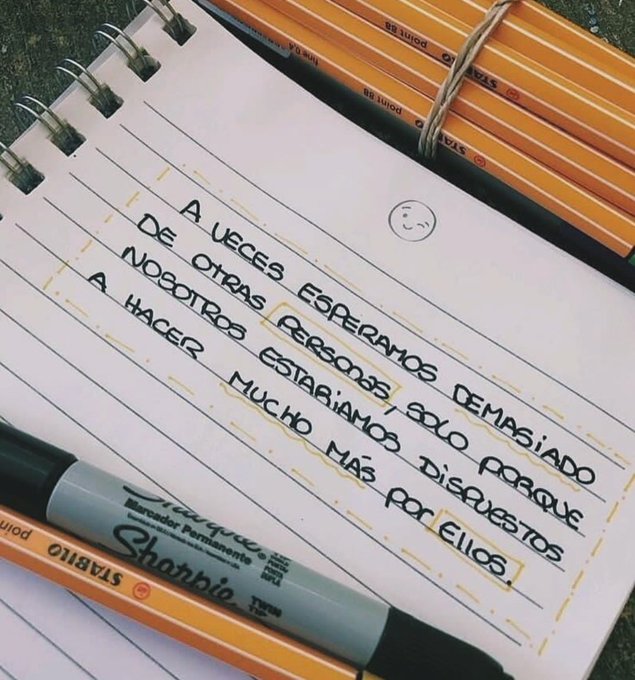 point 88
STABILO
fine 0,4
point 88
STABILO
A VECES ESPERAMOS DEMASIADO
DE OTRAS PERSONAS, SOLO PORQUE
NOSOTROS ESTARIAMOS DISPUESTOS
A HACER MUCHO MÁS POR ELLOS.
Sharpie
Marcador Permanente
Sharpie
TWIN
TIP
STABILO
point